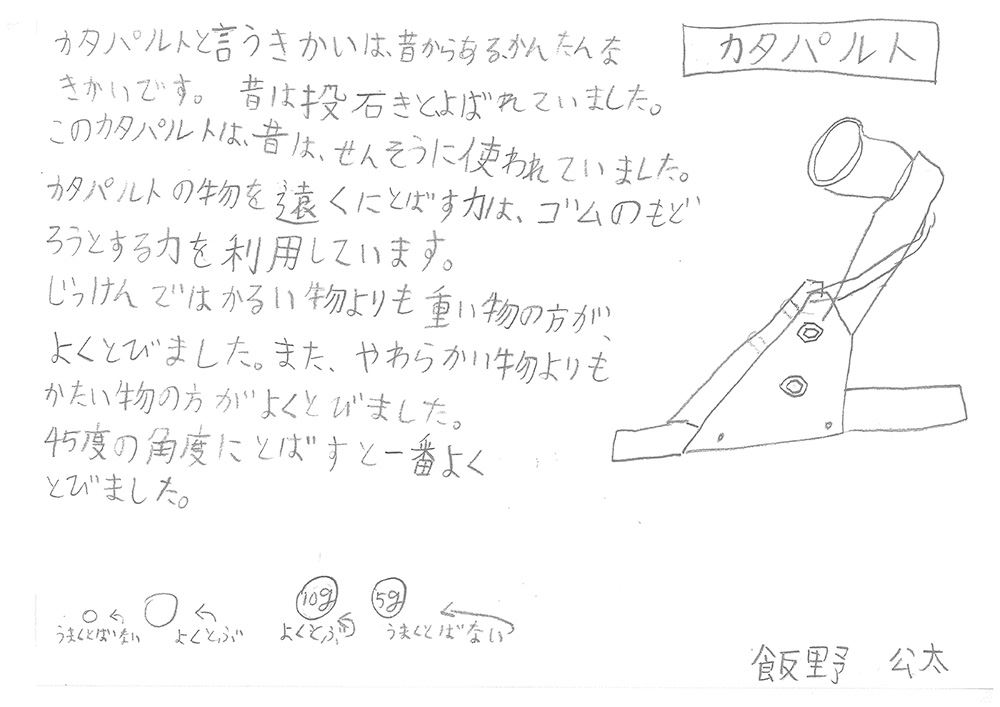 カタパルト
カタパルトと言うきかいは、昔からある、かんたんな
きかいです。 昔は投石きとよばれていました。
このカタパルトは、昔は、せんそうに使われていました。
カタパルトの物を遠くにとばす力は、ゴムのもど
ろうとする力を利用しています。
じっけんではかるい物よりも重い物の方が、
よくとびました。また、やわらかい物よりも
かたい物の方がよくとびました。
45度の角度にとばすと一番よく
とびました。
10g 5g
うまくとばない よくとぶ よくとぶ うまくとばない
飯野 公太